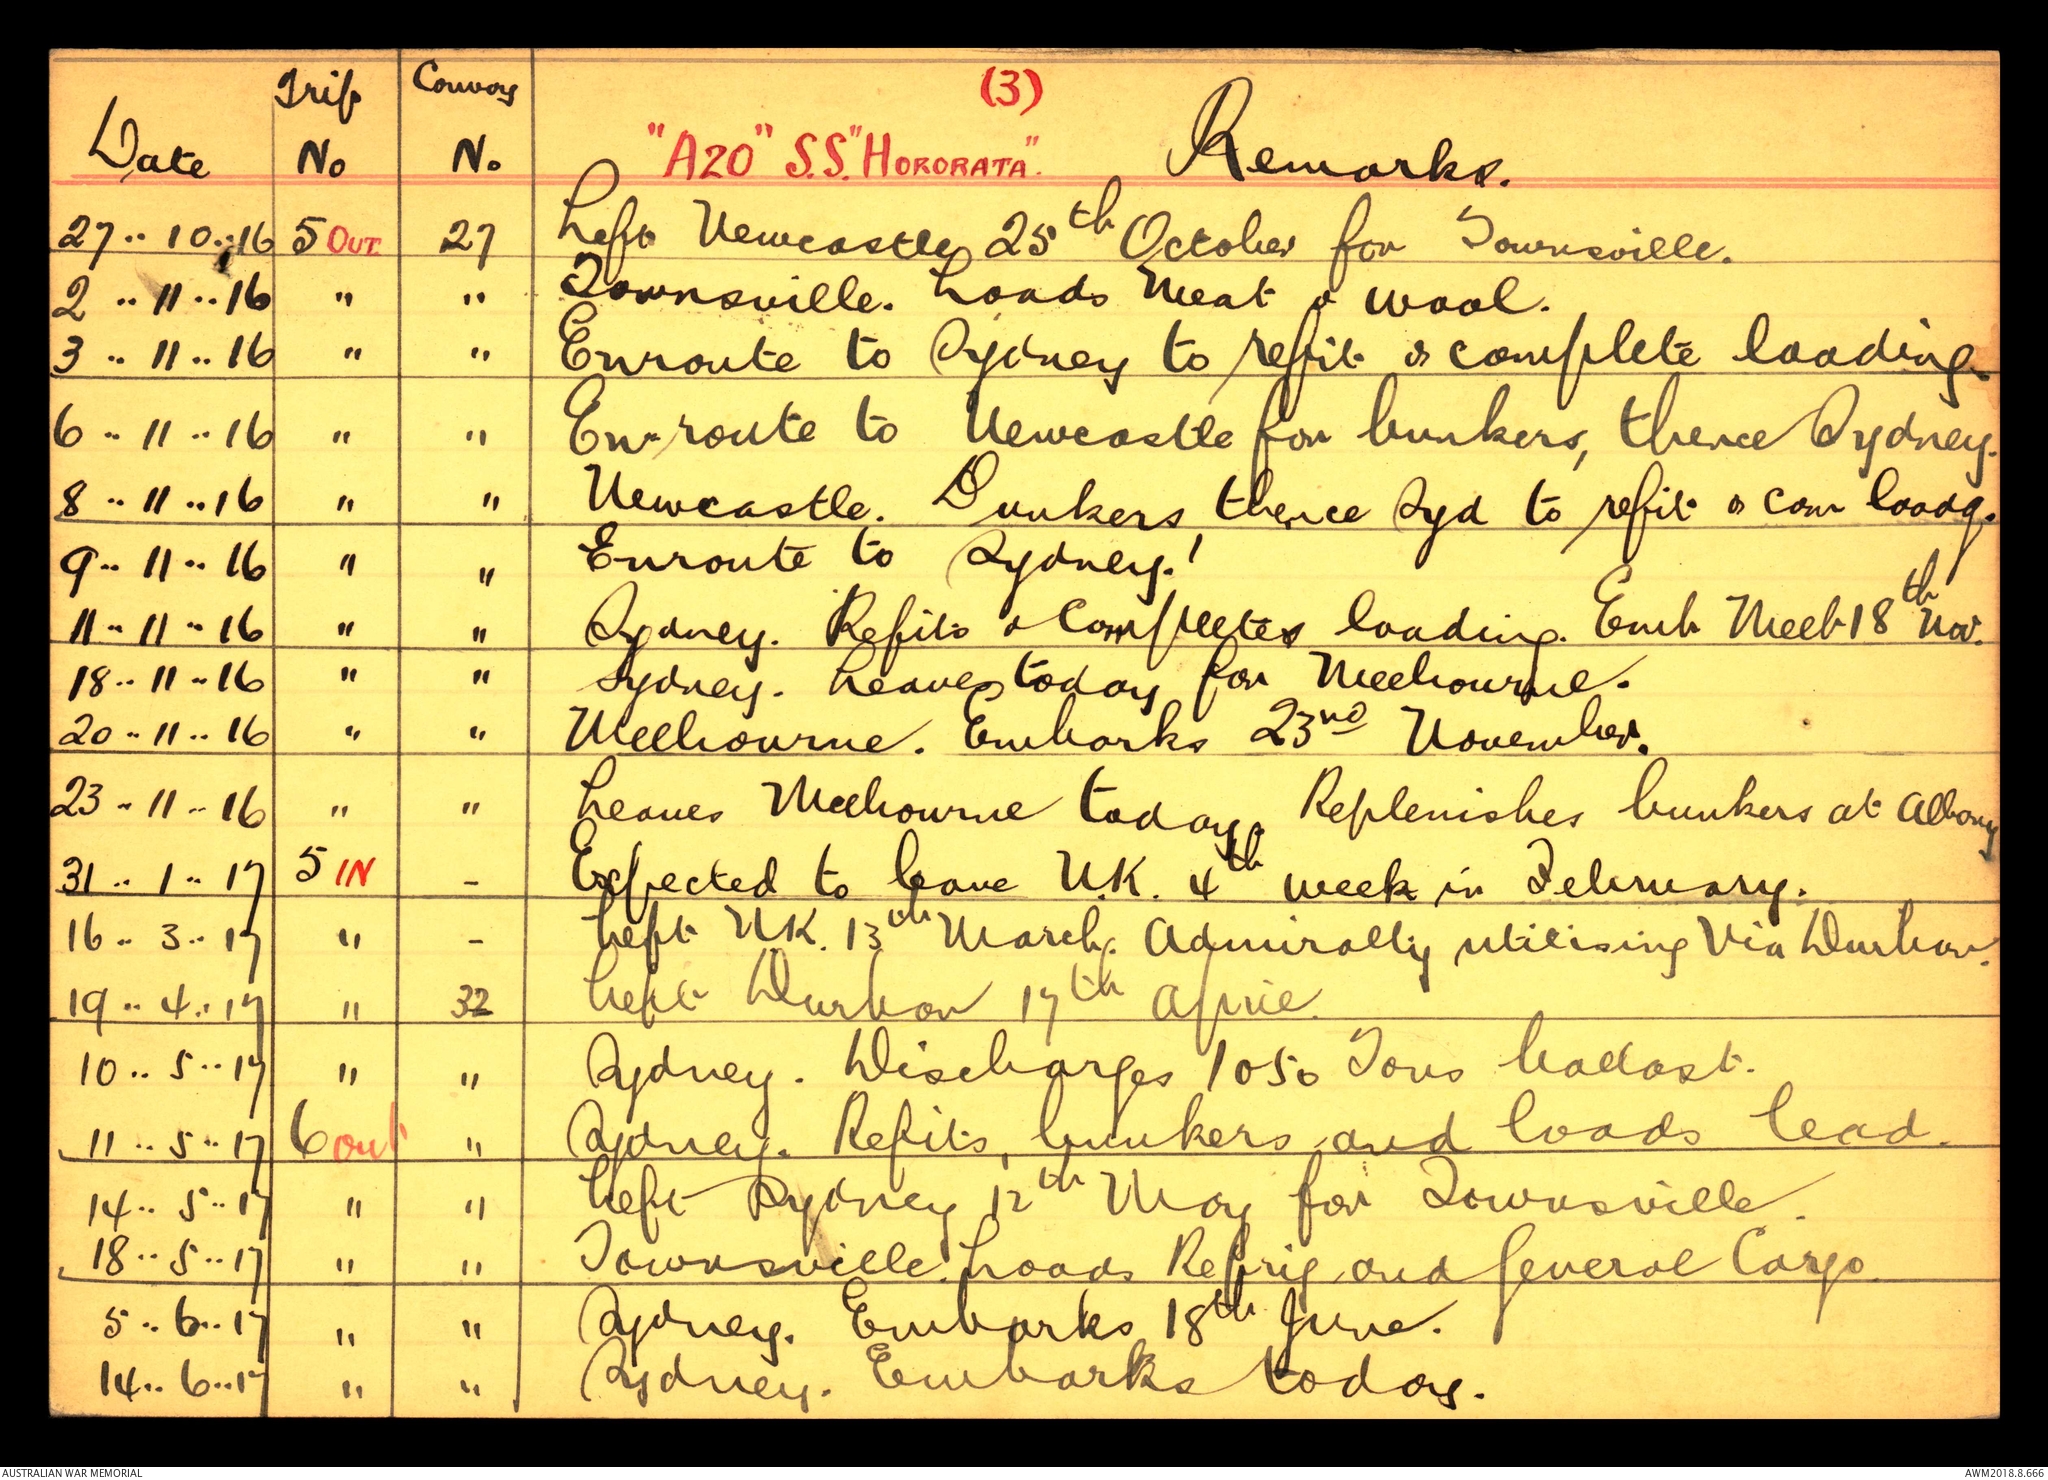 (3)
Date Trip No Convoy No "A20" S.S. "HORORATA". Remarks.
27..10..16 5 OUT 27 Left Newcastle 25th October for Townsville.
2..11..16 " " Townsville. Loads Meat & Wool.
3..11..16 " " Enroute to Sydney to refit & complete loading.
6..11..16 " " En-route to Newcastle for bunkers, thence Sydney.
8..11..16 " " Newcastle. Bunkers thence Syd to refit & com loadg.
9..11..16 " " Enroute to Sydney.
11..11..16 " " Sydney. Refits & Completes loading. Emb Melb 18th Nov.
18..11..16 " " Sydney. Leaves today for Melbourne.
20..11..16 " " Melbourne. Embarks 23rd November.
23..11..16 " " Leaves Melbourne today. Replenishes bunkers at Albany
31..1..17 5 IN - Expected to leave U.K. 4th week in February.
16..3..17 " - Left U.K. 13th March. Admiralty utilising Via Durban.
19..4..17 " 32 Left Durban 17th April.
10..5..17 " " Sydney. Discharges 1050 Tons ballast.
11..5..17 6 out " Sydney. Refits, bunkers and loads lead.
14..5..17 " " Left Sydney 12th May for Townsville.
18..5..17 " " Townsville. Loads Refrig and General Cargo.
5..6..17 " " Sydney. Embarks 18th June.
14..6..17 " " Sydney. Embarks today.
AUSTRALIAN WAR MEMORIAL AWM2018.8.666